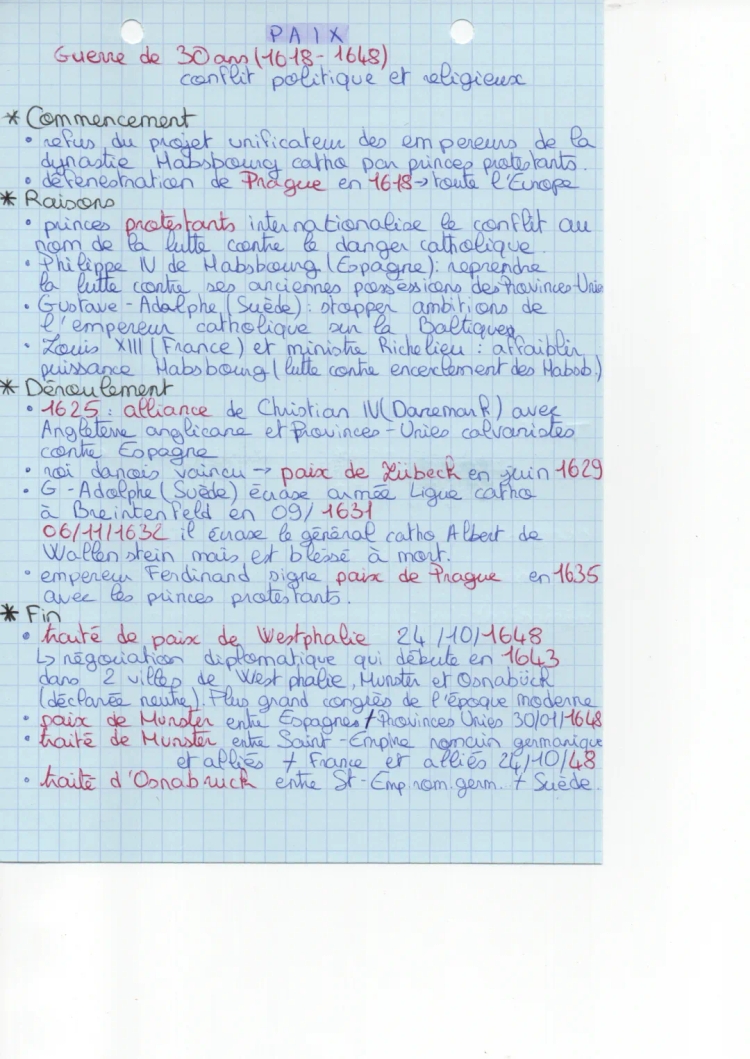 PAIX
Guerre de 30 ans (1618-1648)
conflit politique et religieux
* Commencement
• refus du projet unificateur des empereurs de la
dynastie Habsbourg catho par princes protestants.
• défenestration de Prague en 1618 → toute l'Europe
* Raisons
• princes protestants internationalise le conflit au
nom de la lutte contre le danger catholique.
• Philippe IV de Habsbourg (Espagne) : reprendre
la lutte contre ses anciennes possessions des Provinces-Unie
• Gustave-Adolphe (Suède) : stopper ambitions de
l'empereur catholique sur la Baltique
• Louis XIII (France) et ministre Richelieu : affaiblir
puissance Habsbourg (lutte contre encerclement des Habsb.)
* Déroulement
• 1625 : alliance de Christian IV (Danemark) avec
Angleterre anglicane et Provinces-Unies calvinistes
contre Espagne
• roi danois vaincu → paix de Lübeck en juin 1629
• G-Adolphe (Suède) écrase armée Ligue catho
à Breintenfeld en 09/1631
06/11/1632 il écrase le général catho Albert de
Wallenstein mais est blessé à mort.
• empereur Ferdinand signe paix de Prague en 1635
avec les princes protestants.
* Fin
• traité de paix de Westphalie 24/10/1648
↳ négociation diplomatique qui débute en 1643
dans 2 villes de Westphalie, Munster et Osnabück
(déclarée neutre). Plus grand congrès de l'époque moderne
• paix de Munster entre Espagnes / Provinces Unies 30/01/1648
• traité de Munster entre Saint-Empire romain germanique
et alliés + France et alliés 24/10/48
• traité d'Osnabruck entre St-Emp.rom.germ. + Suède.